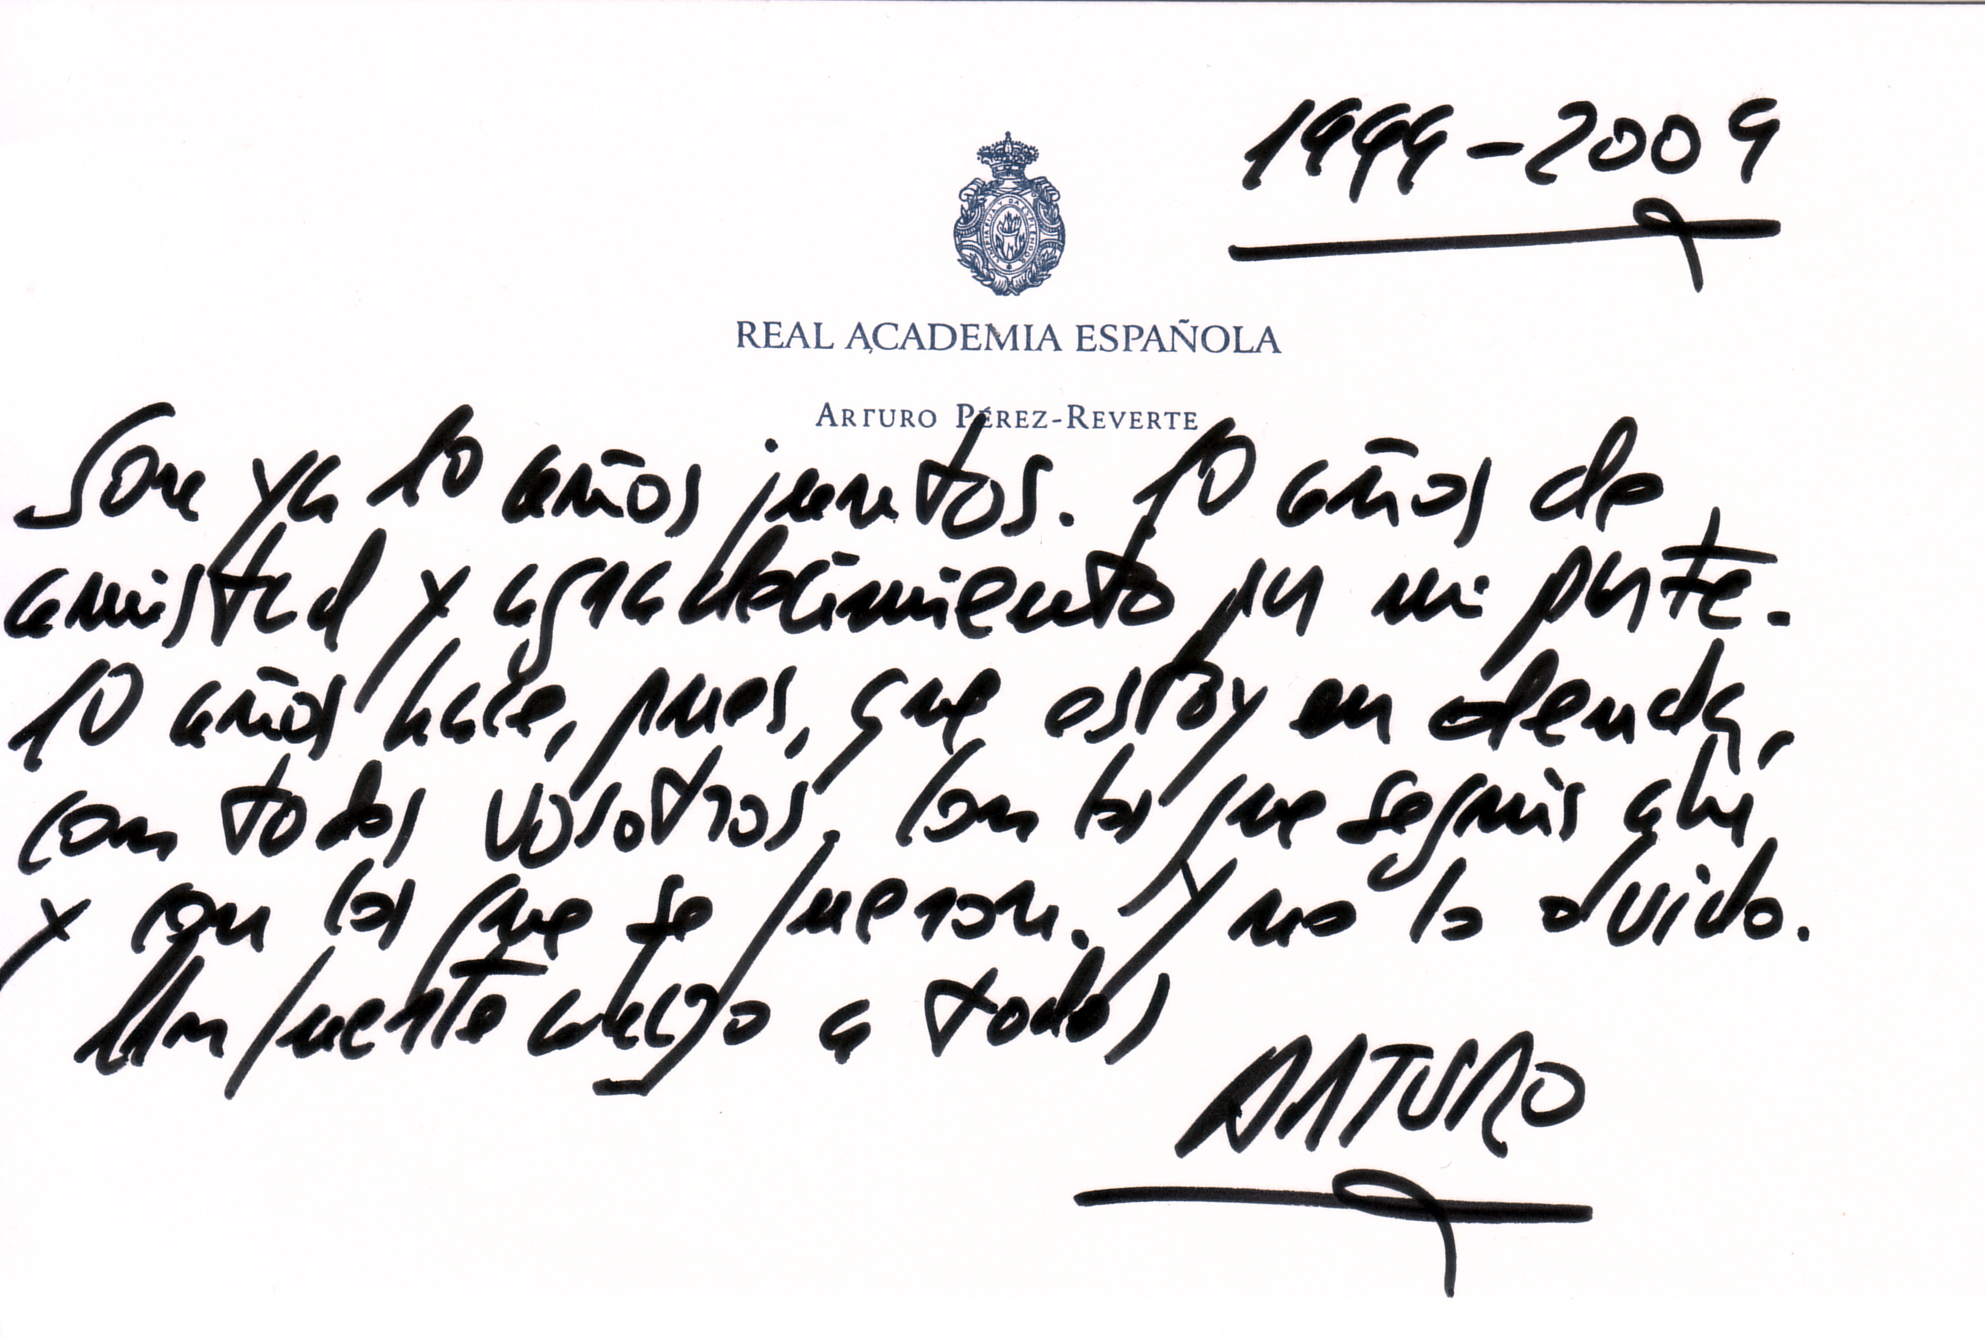 1999-2009
REAL ACADEMIA ESPAÑOLA
ARTURO PÉREZ-REVERTE
Son ya 10 años juntos. 10 años de
amistad y agradecimiento por mi parte.
10 años hace, pues, que estoy en deuda,
con todos vosotros. Con los que seguís ahí
y con los que se fueron. Y no lo olvido.
Un fuerte abrazo a todos
ARTURO